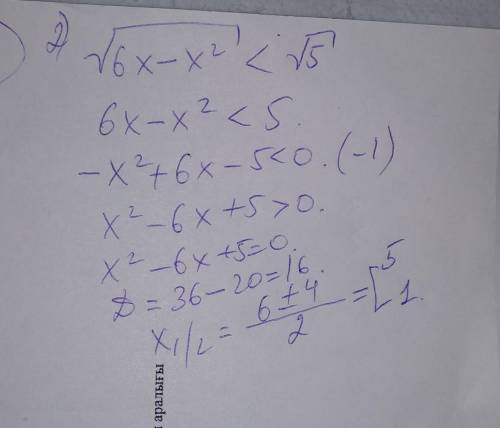 2)
√6x-x² < √5
6x-x² < 5.
-x²+6x-5<0. (-1)
x²-6x+5>0.
x²-6x+5=0.
D = 36-20=16.
x₁/₂ = (6±4)/2 = [5 1.
аралығы